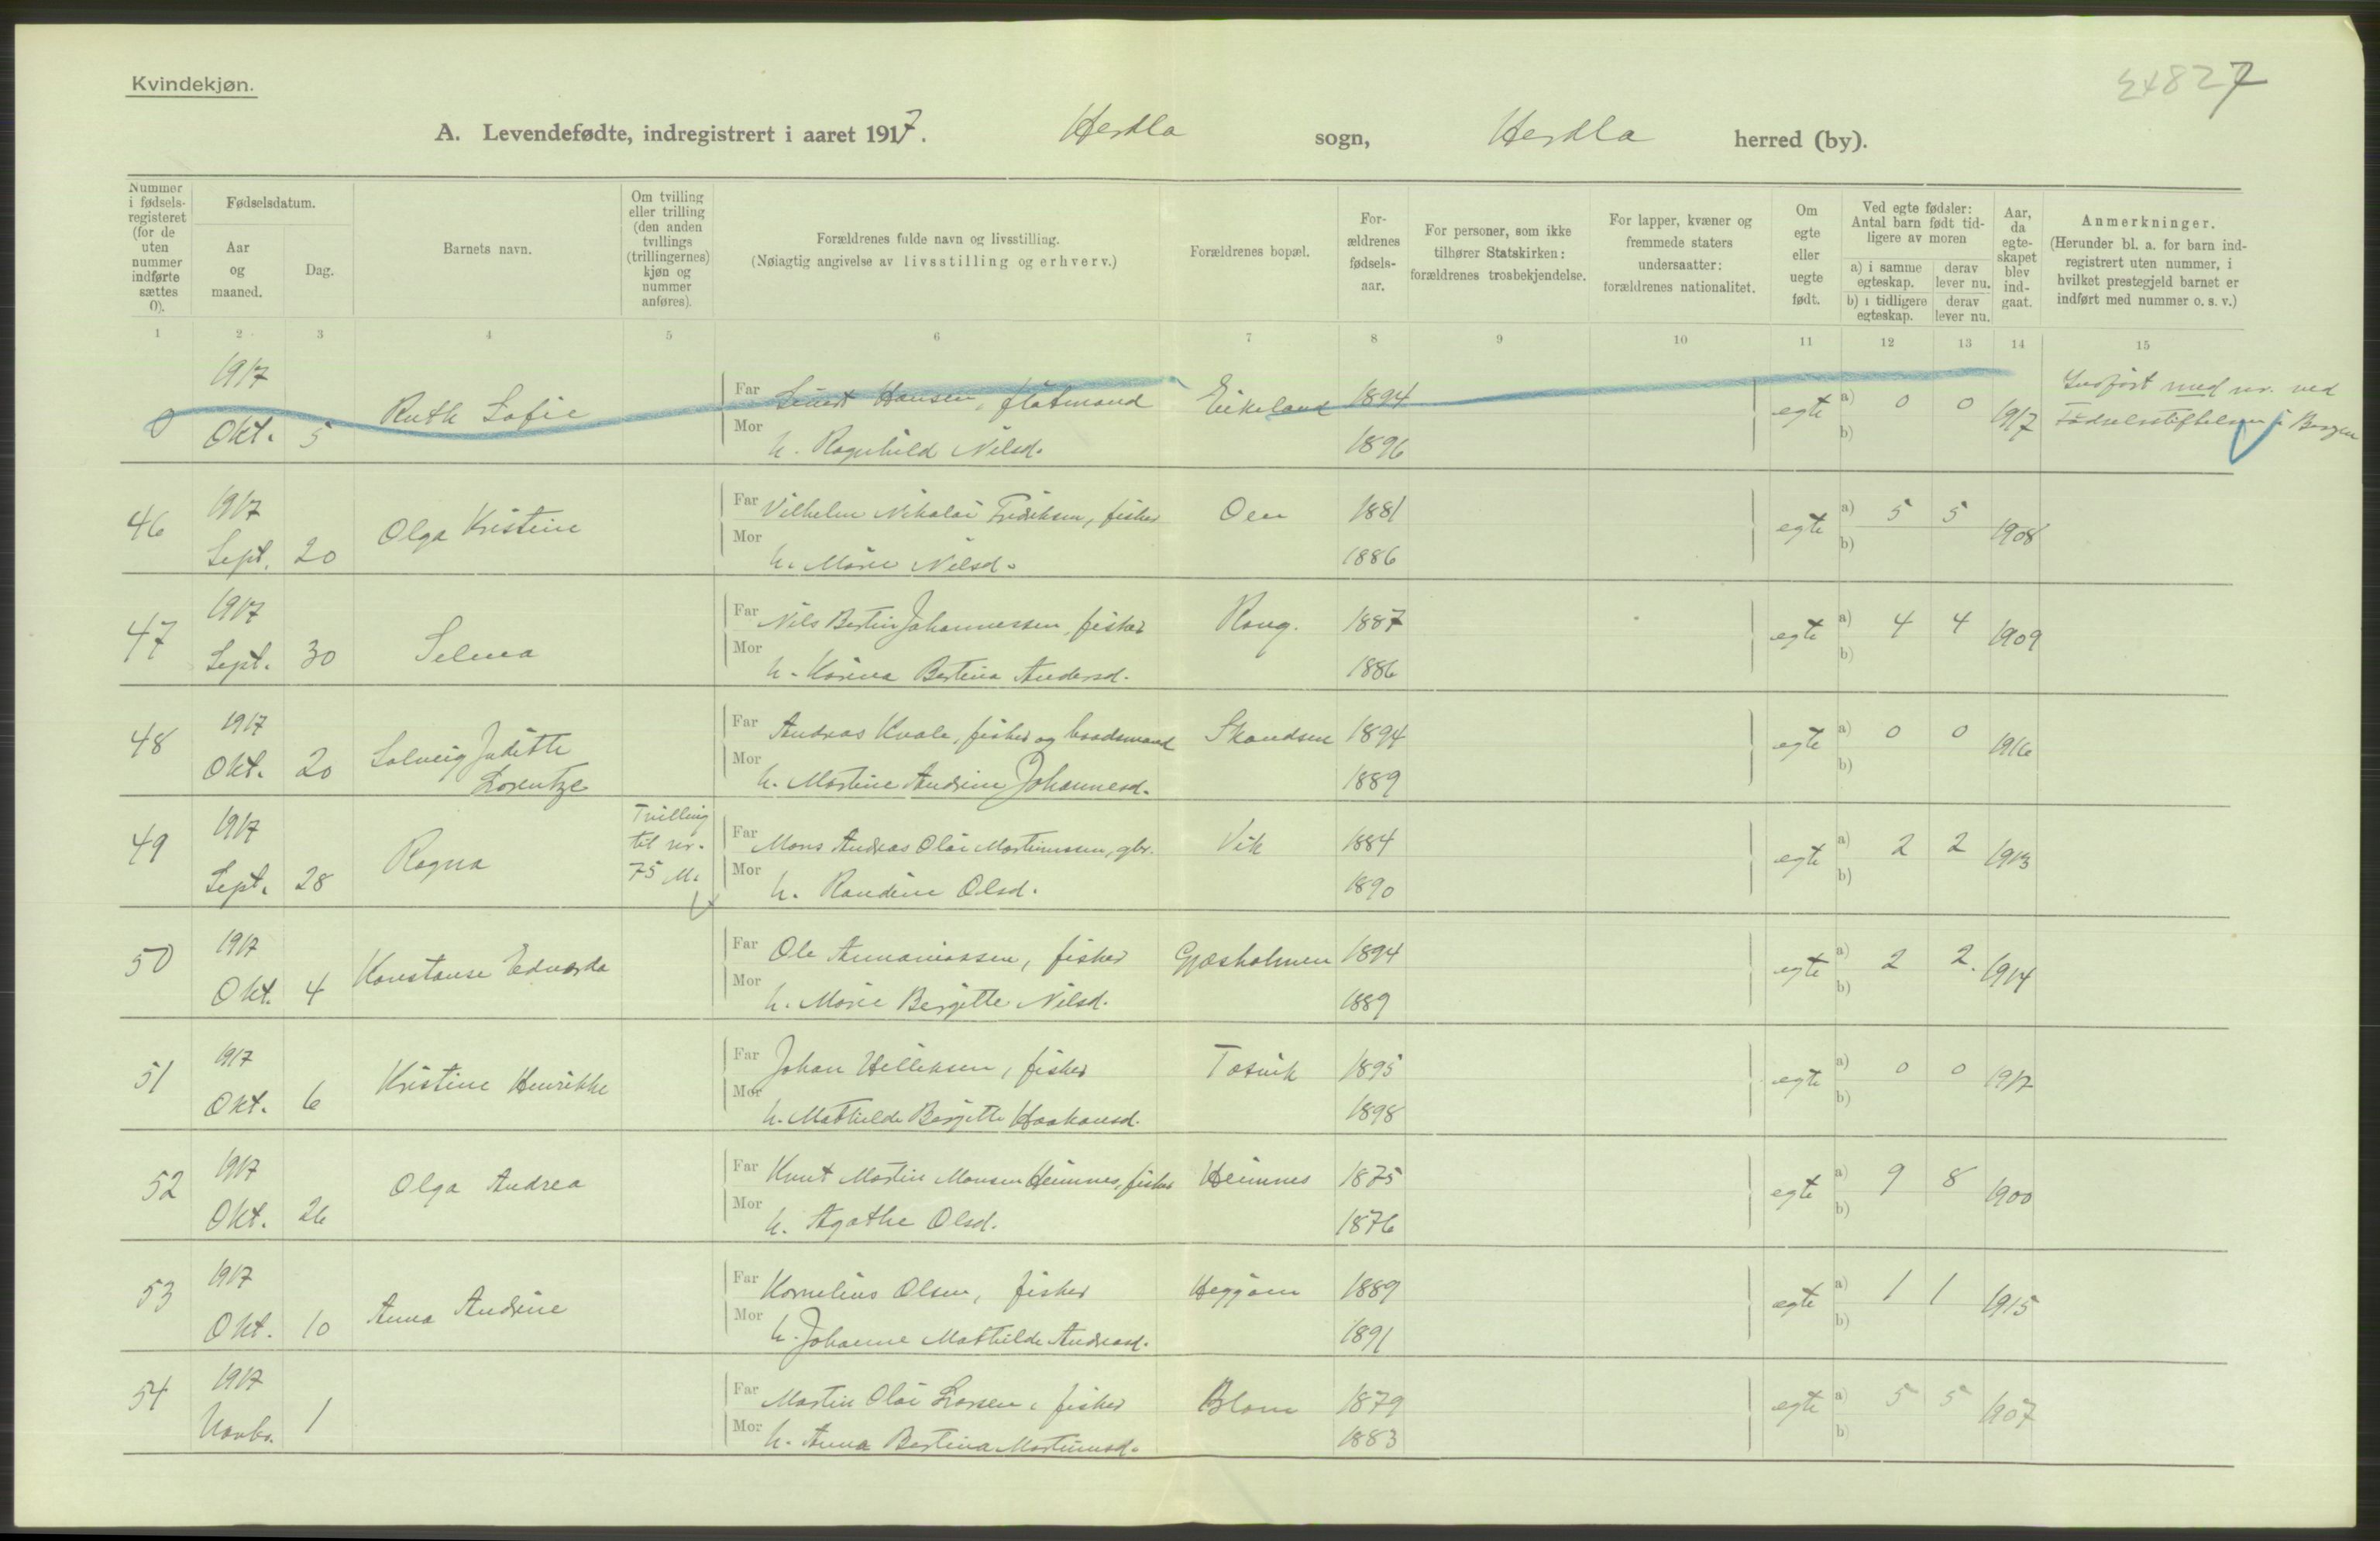 Kvindekjøn.
24827
A. Levendefødte, indregistrert i aaret 1917. Herdla sogn, Herdla herred (by).
Nummer i fødselsregisteret (for de uten nummer indførte sættes 0).
Fødselsdatum.
Aar og maaned.
Dag.
Barnets navn.
Om tvilling eller trilling (den anden tvillings (trillingernes) kjøn og nummer anføres).
Forældrenes fulde navn og livsstilling.
(Nøiagtig angivelse av livsstilling og erhverv.)
Forældrenes bopæl.
Forældrenes fødselsaar.
For personer, som ikke tilhører Statskirken: forældrenes trosbekjendelse.
For lapper, kvæner og fremmede staters undersaatter: forældrenes nationalitet.
Om egte eller uegte født.
Ved egte fødsler: Antal barn født tidligere av moren
a) i samme egteskap. derav lever nu.
b) i tidligere egteskap. derav lever nu.
Aar, da egteskapet blev indgaat.
Anmerkninger.
(Herunder bl. a. for barn indregistrert uten nummer, i hvilket prestegjeld barnet er indført med nummer o. s. v.)
1 2 3 4 5 6 7 8 9 10 11 12 13 14 15
0 1917 Okt. 5 Ruth Sofie
Far Hansen, flåtmand Eikeland 1894 egte a) 0 0 1917 Indført med nr. ved
Mor h. Ragnhild Nilsd. 1896 b) Fødselsstiftelsen i Bergen
46 1917 Sept. 20 Olga Kristine
Far Vilhelm Nikolai Fredriksen, fisker Oen 1881 egte a) 5 5 1908
Mor h. Marie Nilsd. 1886 b)
47 1917 Sept. 30 Selma
Far Nils Bertin Johannessen, fisker Rong. 1887 egte a) 4 4 1909
Mor h. Karina Bertina Andersd. 1886 b)
48 1917 Okt. 20 Solveig Judith Lorentze
Far Andreas Kvale, fisker og baadsmand Skandsen 1894 egte a) 0 0 1916
Mor h. Martine Andrine Johannesd. 1889 b)
49 1917 Sept. 28 Ragna Tvilling til nr. 75 M.
Far Mons Andreas Olai Martinussen, gbr. Vik 1884 egte a) 2 2 1913
Mor h. Randine Olsd. 1890 b)
50 1917 Okt. 4 Konstanse Edvarda
Far Ole Annaniassen, fisker Gjæsholmen 1894 egte a) 2 2. 1914
Mor h. Marie Bergitte Nilsd. 1889 b)
51 1917 Okt. 6 Kristine Henrikke
Far Johan Hilleksen, fisker Tosvik 1895 egte a) 0 0 1917
Mor h. Mathilde Bergitte Haakonsd. 1898 b)
52 1917 Okt. 26 Olga Andrea
Far Knut Martin Monsen Heimnes, fisker Heimnes 1875 egte a) 9 8 1900
Mor h. Agathe Olsd. 1876 b)
53 1917 Okt. 10 Anna Andrine
Far Kornelius Olsen, fisker Heggøen 1889 egte a) 1 1 1915
Mor h. Johanne Mathilde Andreasd. 1891 b)
54 1917 Novbr. 1
Far Martin Olai Larsen, fisker Blom 1879 egte a) 5 5 1907
Mor h. Anna Bertina Martinusd. 1883 b)